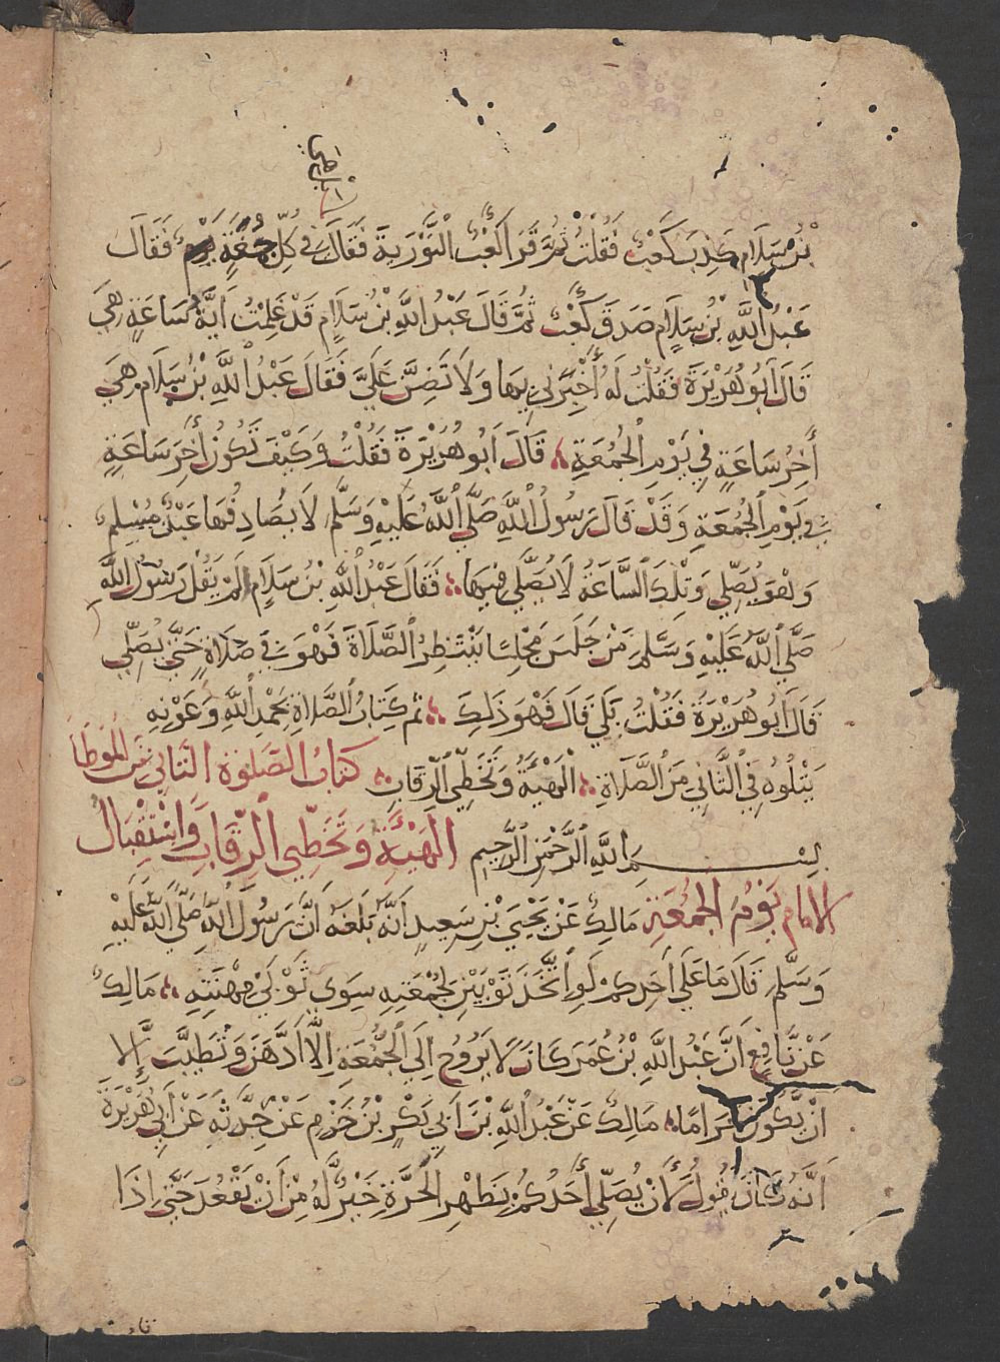 بْنُ سَلَامٍ كَذَبَ كَعْبٌ فَقُلْتُ ثُمَّ قَرَأَ كَعْبٌ التَّوْرِيةَ فَقَالَ فِي كُلِّ جُمُعَةٍ فَقَالَ
عَبْدُ اللَّهِ بْنُ سَلَامٍ صَدَقَ كَعْبٌ ثُمَّ قَالَ عَبْدُ اللَّهِ بْنُ سَلَامٍ قَدْ عَلِمْتُ أَيَّةُ سَاعَةٍ هِيَ
قَالَ أَبُو هُرَيْرَةَ فَقُلْتُ لَهُ أَخْبِرْنِي بِهَا وَلَا تَضِنَّ عَلَيَّ فَقَالَ عَبْدُ اللَّهِ بْنُ سَلَامٍ هِيَ
أَخِرُ سَاعَةٍ فِي يَوْمِ الْجُمُعَةِ قَالَ أَبُو هُرَيْرَةَ فَقُلْتُ وَكَيْفَ تَكُونُ أَخِرَ سَاعَةٍ
فِي يَوْمِ الْجُمُعَةِ وَقَدْ قَالَ رَسُولُ اللَّهِ صَلَّى اللَّهُ عَلَيْهِ وَسَلَّم لَا يُصَادِفُهَا عَبْدٌ مُسْلِم
وَهُوَ يُصَلِّي وَتِلْكَ السَّاعَةُ لَا يُصَلَّى فِيهَا فَقَالَ عَبْدُ اللَّهِ بْنُ سَلَامٍ أَلَمْ يَقُلْ رَسُولُ اللَّهِ
صَلَّى اللَّهُ عَلَيْهِ وَسَلَّم مَنْ جَلَسَ مَجْلِسًا يَنْتَظِرُ الصَّلَاةَ فَهُوَ فِي صَلَاةٍ حَتَّى يُصَلِّي
قَالَ أَبُو هُرَيْرَةَ فَقُلْتُ بَلَى قَالَ فَهُوَ ذَلِكَ تم كِتَابُ الصَّلَاةِ بِحَمْدِ اللَّهِ وَعَوْنِهِ
يَتْلُوهُ فِي الثَّانِي مِنَ الصَّلَاةِ الْهَيْئَةُ وَتَخَطِّي الرِّقَابِ كتابُ الصَّلوةِ الثاني من الموطا
بِسْمِ اللَّهِ الرَّحْمَنِ الرَّحِيمِ الْهَيْئَةُ وَتَخَطِّي الرِّقَابِ وَاسْتِقْبَالُ
الامام يَوْمَ الجُمُعَةِ مَالِكٌ عَنْ يَحْيَى بْنِ سَعِيدٍ أَنَّهُ بَلَغَهُ أَنَّ رَسُولَ اللَّهِ صَلَّى اللَّهُ عَلَيْهِ
وَسَلَّم قَالَ مَا عَلَى أَحَدِكُمْ لَوِ اتَّخَذَ ثَوْبَيْنِ لِجُمْعَتِهِ سِوَى ثَوْبَيْ مِهْنَتِهِ مَالِكٌ
عَنْ نَّافِعٍ أَنَّ عَبْدَ اللَّهِ بْنَ عُمَرَ كَانَ لَا يَرُوحُ إِلَى الْجُمُعَةِ إِلَّا ادَّهَنَ وَتَطَيَّبَ إِلَّا
أَنْ يَكُونَ حَرَامًا مَالِكٌ عَنْ عَبْدِ اللَّهِ بْنِ أَبِي بَكْرِ بْنِ حَزْمٍ عَنْ حَدَّثَهِ عَنْ أَبِي هُرَيْرَةَ
أَنَّهُ كَانَ يَقُولُ لَأَنْ يُصَلِّيَ أَحَدُكُمْ بِظَهْرِ الْحَرَّةِ خَيْرٌ لَّهُ مِنْ أَنْ يَقْعُدَ حَتَّى إِذَا